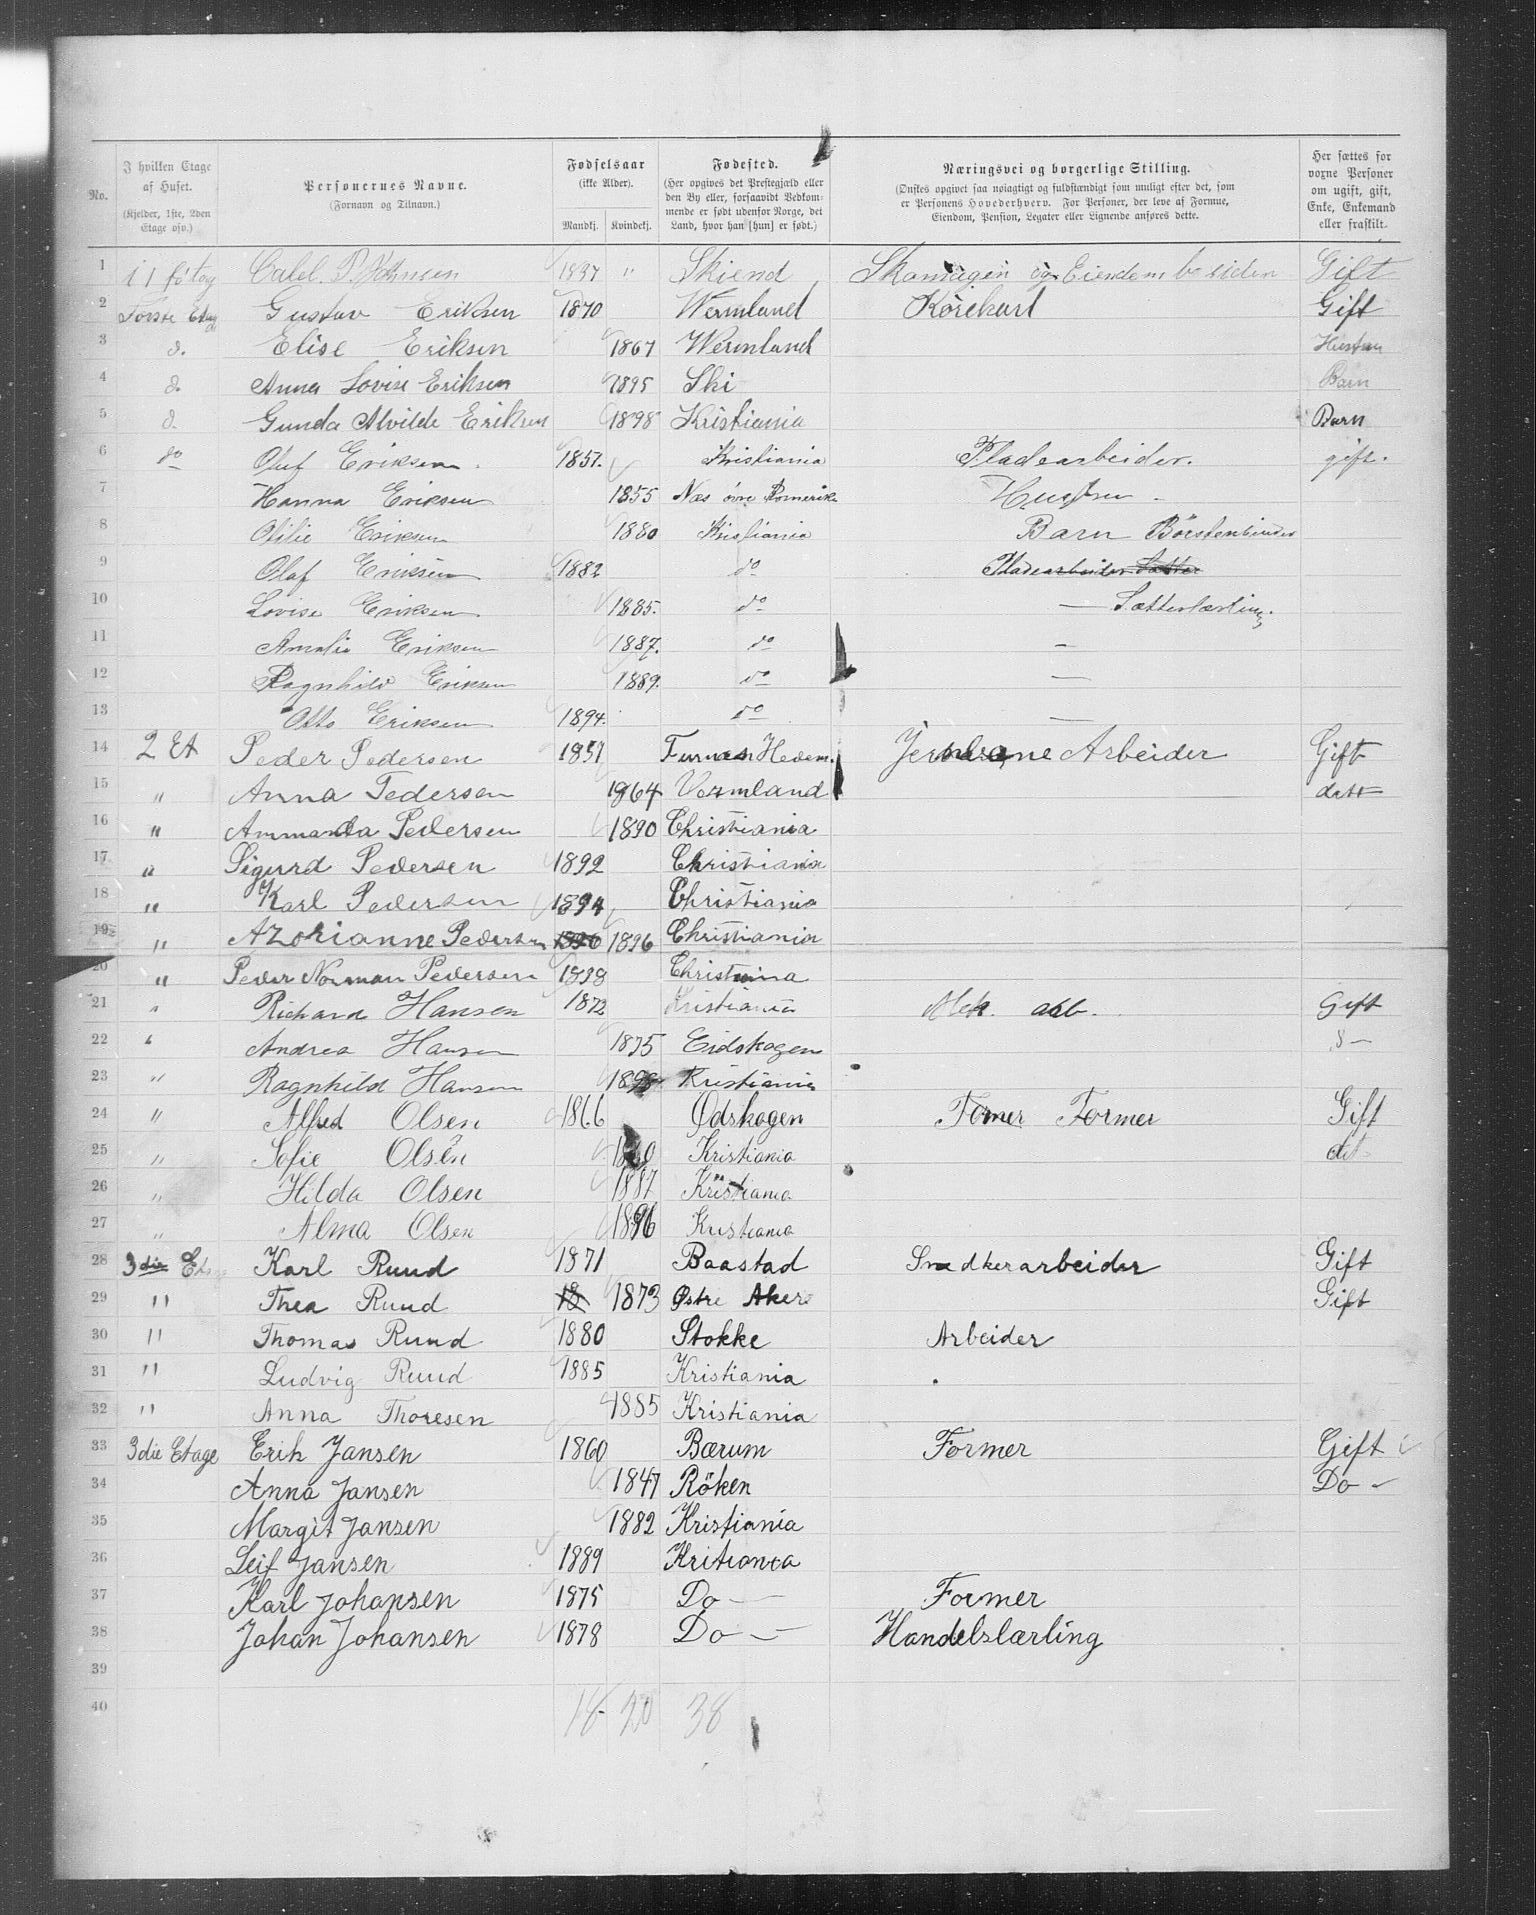 No.
I hvilken Etage af Huset.
(Kjelder, 1ste, 2den Etage osv.)
Personernes Navne.
(Fornavn og Tilnavn.)
Fødselsaar
(ikke Alder).
Mandkj. Kvindekj.
Fødested.
(Her opgives det Prestegjæld eller den By eller, forsaavidt Vedkommende er født udenfor Norge, det Land, hvor han [hun] er født.)
Næringsvei og borgerlige Stilling.
(Ønskes opgivet saa nøiagtigt og fuldstændigt som muligt efter det, som er Personens Hovederhverv. For Personer, der leve af Formue, Eiendom, Pension, Legater eller Lignende anføres dette.
Her sættes for voxne Personer om ugift, gift, Enke, Enkemand eller fraskilt.
1 Skiend Gift
2 Gustav Eriksen 1870 Wermland Körekarl Gift
3 d. Elise Eriksen 1867 Wermland Hustru
4 d. Anna Lovise Eriksen 1895 Ski Barn
5 d. Gunda Alvilde Eriksen 1898 Kristiania Barn
6 do Oluf Eriksen. 1857. Kristiania Pladearbeider. gift.
7 Hanna Eriksen 1855 Næs övre Romerike Hustru -
8 Otilie Eriksen 1880 Kristiania Barn Börstenbinder
9 Olaf Eriksen 1882 do Pladearbeider Sætter
10 Lovise Eriksen 1885. do — Sætterlærling.
11 Amalie Eriksen 1887. do —
12 Ragnhild Eriksen 1889. do —
13 Otto Eriksen 1894. do —
14 2 Et Peder Pedersen 1857 Furnes Hedem. Jernbane Arbeider Gift
15 " Anna Pedersen 1864 Vermland dett
16 " Ammanda Pedersen 1890 Christiania
17 " Sigurd Pedersen 1892 Christiania
18 " Karl Pedersen 1894 Christiania
19 " Azorianne Pedersen 1896 1896 Christiania
20 " Peder Norman Pedersen 1898 Christiania
21 " Richard Hansen 1872 Kristiania Mek. arb. Gift
22 " Andrea Hansen 1875 Eidskogen d —
23 " Ragnhild Hansen 1898 Kristiania
24 " Alfred Olsen 1866 Ødskogen Fomer Former Gift
25 " Sofie Olsen Kristiania det
26 " Hilda Olsen 1887 Kristiania
27 " Alma Olsen 1896 Kristiania
28 3die Etage Karl Ruud 1871 Baastad Snedkerarbeider Gift
29 " Thea Ruud 18 1873 Østre Aker Gift
30 " Thomas Ruud 1880 Stokke Arbeider
31 " Ludvig Ruud 1885 Kristiania
32 " Anna Thoresen 1885 Kristiania
33 3die Etage Erik Jansen 1860 Bærum Former Gift
34 Anna Jansen 1847 Röken Do -
35 Margit Jansen 1882 Kristiania
36 Leif Jansen 1889 Kritiania
37 Karl Johansen 1875 Do — Former
38 Johan Johansen 1878 Do — Handelslærling
39
40 18 - 20 38